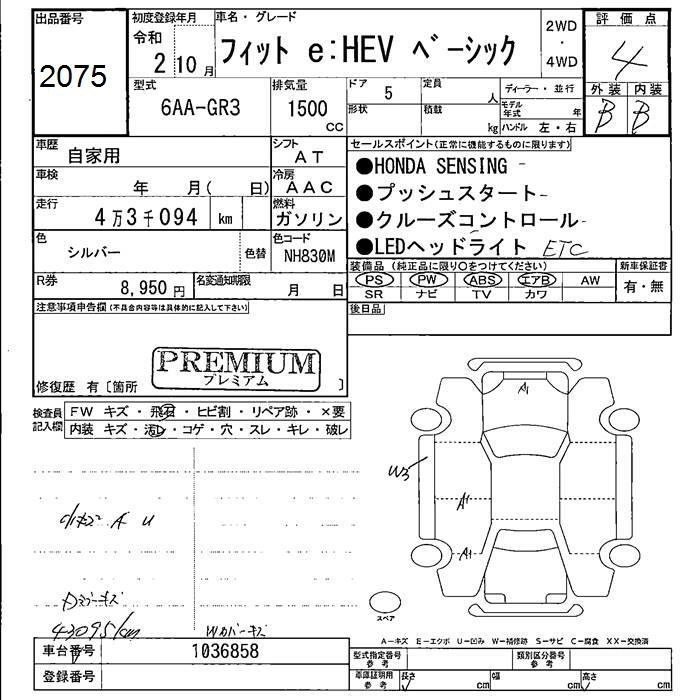 出品番号
2075
初度登録年月
令和
2 10月
車名・グレード
フィット e:HEV ベーシック
2WD
・
4WD
評価点
4
外装 内装
B B
型式
6AA-GR3
排気量
1500
CC
ドア
5
定員
人
形状
積載
kg
ディーラー・並行
モデル年式 年
ハンドル 左・右
車歴
自家用
シフト
AT
車検
年 月( 日)
冷房
AAC
走行
4万3千094 km
燃料
ガソリン
色
シルバー
色替
色コード
NH830M
R券
8,950円
名変通知期限
月 日
セールスポイント(正常に機能するものに限ります)
●HONDA SENSING
●プッシュスタート
●クルーズコントロール
●LEDヘッドライト ETC
装備品 (純正品に限り○をつけてください)
PS PW ABS エアB AW
SR ナビ TV カワ
新車保証書
有・無
後日品
注意事項申告欄(不具合内容等は具体的に記入して下さい)
PREMIUM
プレミアム
修復歴 有〔箇所 〕
検査員
記入欄
FW キズ・飛石・ヒビ割・リペア跡・×要
内装 キズ・汚レ・コゲ・穴・スレ・キレ・破レ
A U
キズ
43095km
Wカバーキズ
A1
W3
A1
A1
スペア
A-キズ E-エクボ U-凹み W-補修跡 S-サビ C-腐食 XX-交換済
車台番号
1036858
登録番号
型式指定番号
参考
類別区分番号
参考
車庫証明用
参考
長さ cm
幅 cm
高さ cm